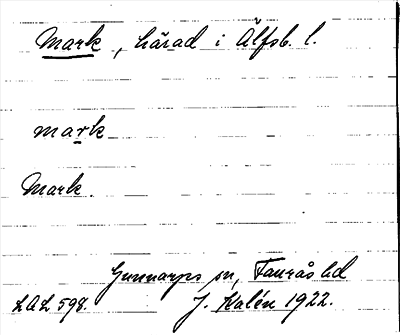 Mark, härad i Älfsb. l.
mark
Mark.
Gunnarps sn, Faurås hd
LAL 598.
J. Kalén 1922.